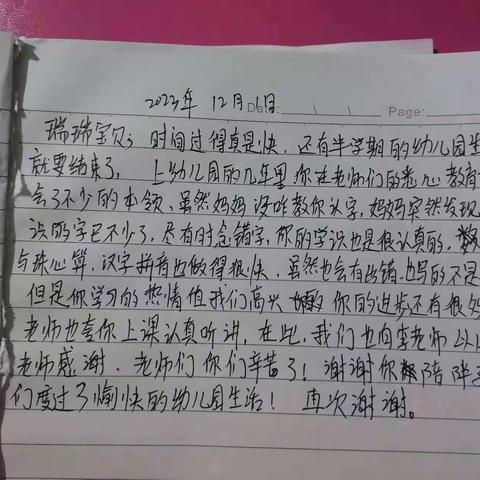 2023年 12月1日
Date: Page:
瑞瑞宝贝: 时间过得真是快, 还有半学期的幼儿园生
就要结束了, 上幼儿园的几年里你在老师们的悉心教育
会了不少的本领, 虽然妈妈没咋教你认字, 妈妈突然发现
识的字已不少了, 尽有时念错字, 你的学识也是很认真的, 数
与珠心算, 汉字拼音也做得很快, 虽然也会有出错, 也写的不是
但是你学习的热情值我们高兴 你的进步还有很多
老师也夸你上课认真听讲, 在此, 我们也向李老师以
老师感谢, 老师们你们辛苦了! 谢谢你 陪伴
们度过了愉快的幼儿园生活! 再次谢谢。